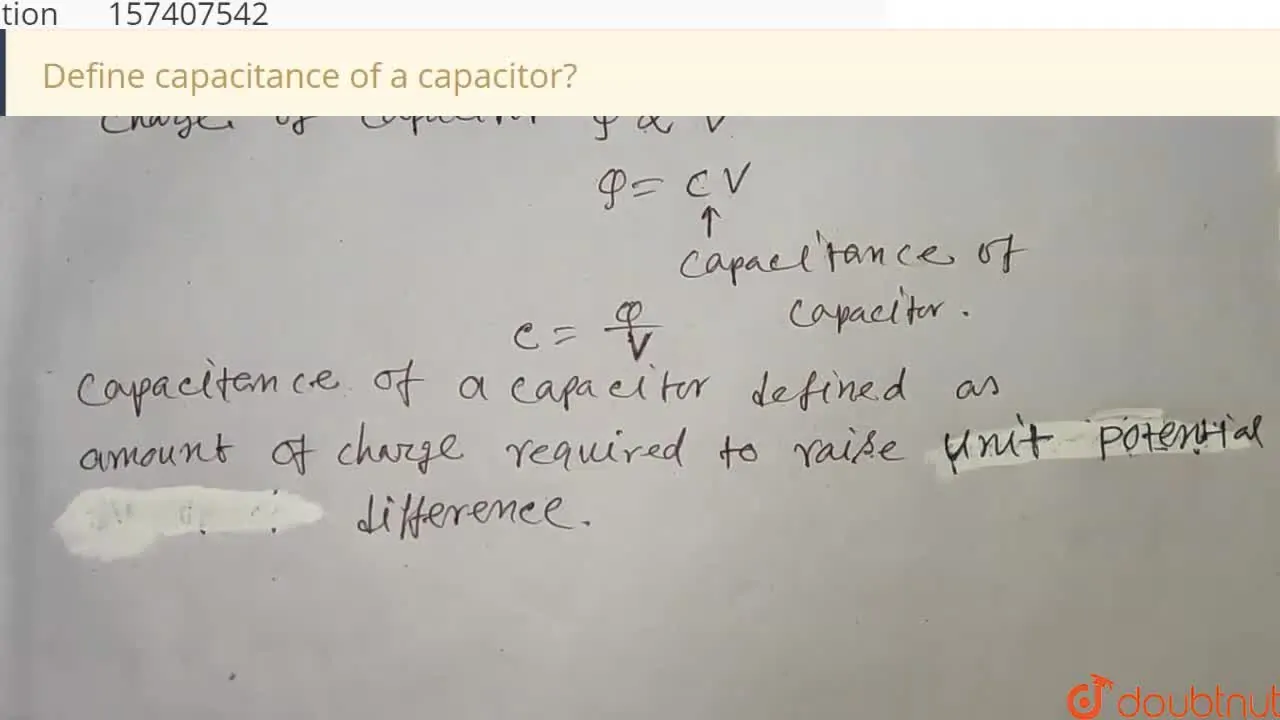 tion 157407542
Define capacitance of a capacitor?
charge of capacitor φ ∝ V
φ = CV
↑
capacitance of
capacitor.
c = φ/V
capacitance of a capacitor defined as
amount of charge required to raise unit potential
difference.
doubtnut